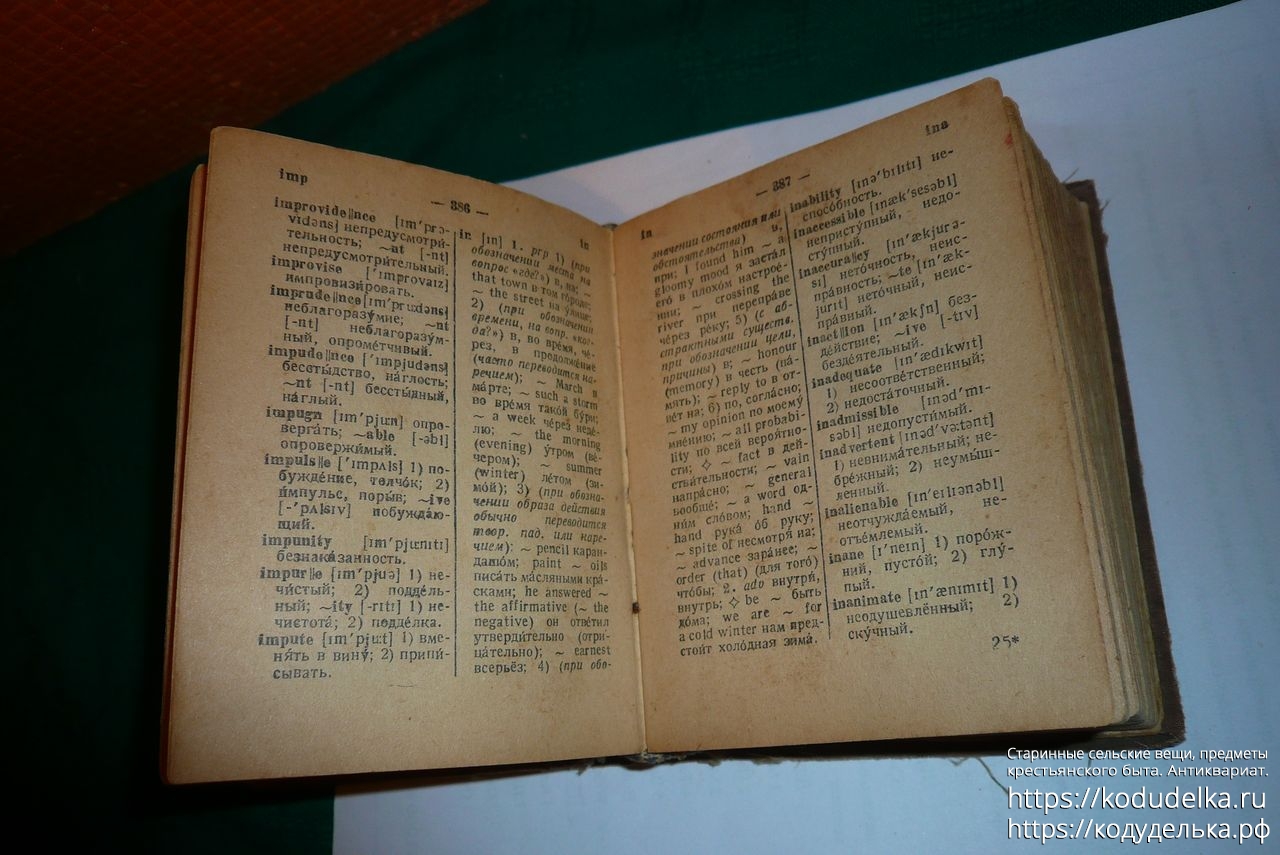 imp
— 386 —
improvide‖nce [ɪm'prɔ-
vɪdəns] непредусмотри́-
тельность; ~nt [-nt]
непредусмотри́тельный.
improvise ['ɪmprəvaɪz]
импровизи́ровать.
imprude‖nce [ɪm'pru:dəns]
неблагоразу́мие; ~nt
[-nt] неблагоразу́м-
ный, опроме́тчивый.
impude‖nce ['ɪmpjudəns]
бессты́дство, на́глость;
~nt [-nt] бессты́дный,
на́глый.
impugn [ɪm'pju:n] опро-
верга́ть; ~able [-əbl]
опроверж́имый.
impuls‖e ['ɪmpʌls] 1) по-
бужде́ние, толчо́к; 2)
и́мпульс, поры́в; ~ive
[-'pʌlsɪv] побужда́ю-
щий.
impunity [ɪm'pju:nɪtɪ]
безнака́занность.
impur‖e [ɪm'pjuə] 1) не-
чи́стый; 2) подде́ль-
ный; ~ity [-rɪtɪ] 1) не-
чистота́; 2) подде́лка.
impute [ɪm'pju:t] 1) вме-
ня́ть в вину́; 2) припи́-
сывать.
in
in [ɪn] 1. prp 1) (при
обозначении места на
вопрос «где?») в, на; ~
that town в том го́роде;
~ the street на у́лице;
2) (при обозначении
времени, на вопр. «ког-
да?») в, во вре́мя, че́-
рез, в продолже́ние
(часто переводится на-
речием); ~ March в
ма́рте; ~ such a storm
во вре́мя тако́й бу́ри;
~ a week че́рез неде́-
лю; ~ the morning
(evening) у́тром (ве́-
чером); ~ summer
(winter) ле́том (зи-
мо́й); 3) (при обозна-
чении образа действия
обычно переводится
твор. пад. или наре-
чием): ~ pencil каран-
дашо́м; paint ~ oils
писа́ть ма́сляными кра́-
сками; he answered ~
the affirmative (~ the
negative) он отве́тил
утверди́тельно (отри-
ца́тельно); ~ earnest
всерьёз; 4) (при обо-
in
— 387 —
значении состояния или
обстоятельства) в,
при; I found him ~ a
gloomy mood я заста́л
его́ в плохо́м настрое́-
нии; ~ crossing the
river при перепра́ве
че́рез ре́ку; 5) (с аб-
страктными существ.
при обозначении цели,
причины) в; ~ honour
(memory) в честь (па́-
мять); ~ reply to в от-
ве́т на; 6) по, согла́сно;
~ my opinion по моему́
мне́нию; ~ all probabi-
lity по всей вероя́тно-
сти; ◇ ~ fact в дей-
стви́тельности; ~ vain
напра́сно; ~ general
вообще́; ~ a word од-
ни́м сло́вом; hand ~
hand рука́ о́б руку;
~ spite of несмотря́ на;
~ advance зара́нее; ~
order (that) (для того́)
что́бы; 2. adv внутри́,
внутрь; ◇ be ~ быть
до́ма; we are ~ for
a cold winter нам пред-
стои́т холо́дная зима́.
ina
inability [ɪnə'bɪlɪtɪ] не-
спосо́бность.
inaccessible [ɪnæk'sesəbl]
непристу́пный, недо-
сту́пный.
inaccura‖cy [ɪn'ækjurə-
sɪ] нето́чность, неис-
пра́вность; ~te [ɪn'æk-
jurɪt] нето́чный, неис-
пра́вный.
inact‖ion [ɪn'ækʃn] без-
де́йствие; ~ive [-tɪv]
безде́ятельный.
inadequate [ɪn'ædɪkwɪt]
1) несоотве́тственный;
2) недоста́точный.
inadmissible [ɪnəd'mɪ-
səbl] недопусти́мый.
inadvertent [ɪnəd'və:tənt]
1) невнима́тельный; не-
бре́жный; 2) неумы́ш-
ленный.
inalienable [ɪn'eɪlɪənəbl]
неотчужда́емый, не-
отъе́млемый.
inane [ɪ'neɪn] 1) поро́ж-
ний, пусто́й; 2) глу́-
пый.
inanimate [ɪn'ænɪmɪt] 1)
неодушевлённый; 2)
ску́чный.
25*
Старинные сельские вещи, предметы
крестьянского быта. Антиквариат.
https://kodudelka.ru
https://кодуделька.рф